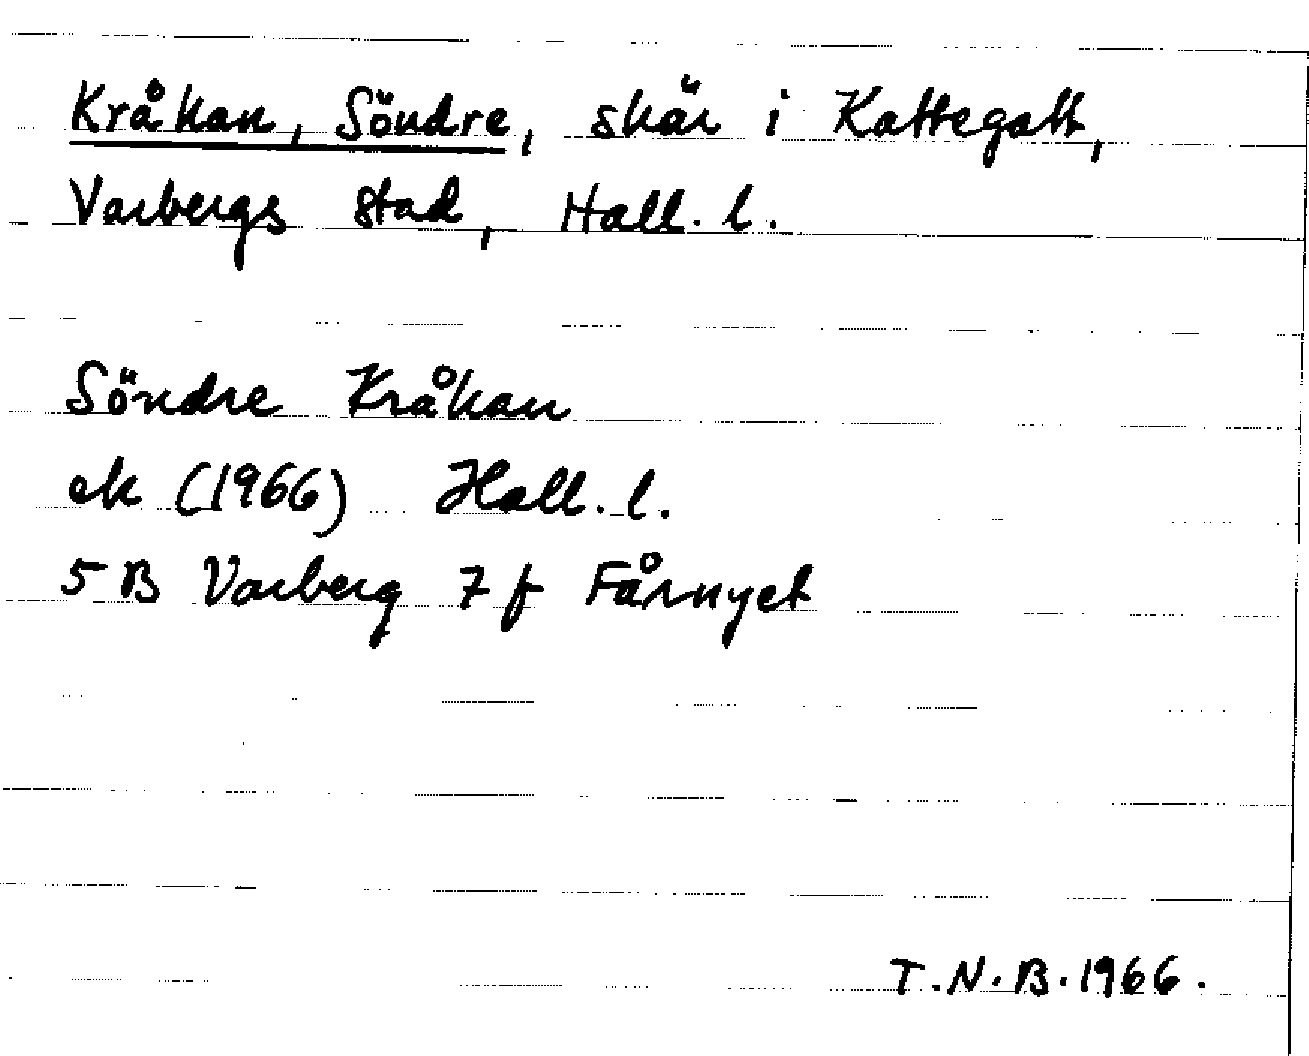 Kråkan, Söndre, skär i Kattegatt,
Varbergs stad, Hall. l.
Söndre Kråkan
ek (1966) Hall. l.
5 B Varberg 7 f Fårnyet
T.N.B. 1966.